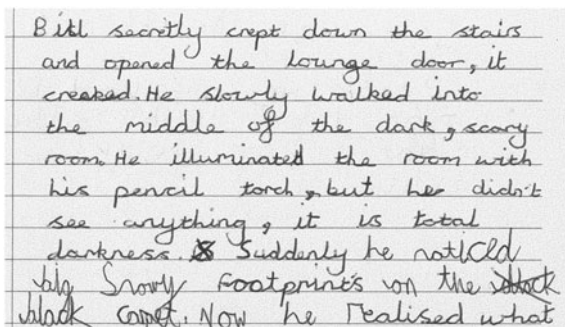 Bill secretly crept down the stairs
and opened the lounge door, it
creaked. He slowly walked into
the middle of the dark, scary
room. He illuminated the room with
his pencil torch, but he didn't
see anything, it is total
darkness. Suddenly he noticed
big Snowy Footprints on the
black Carpet. Now he realised what